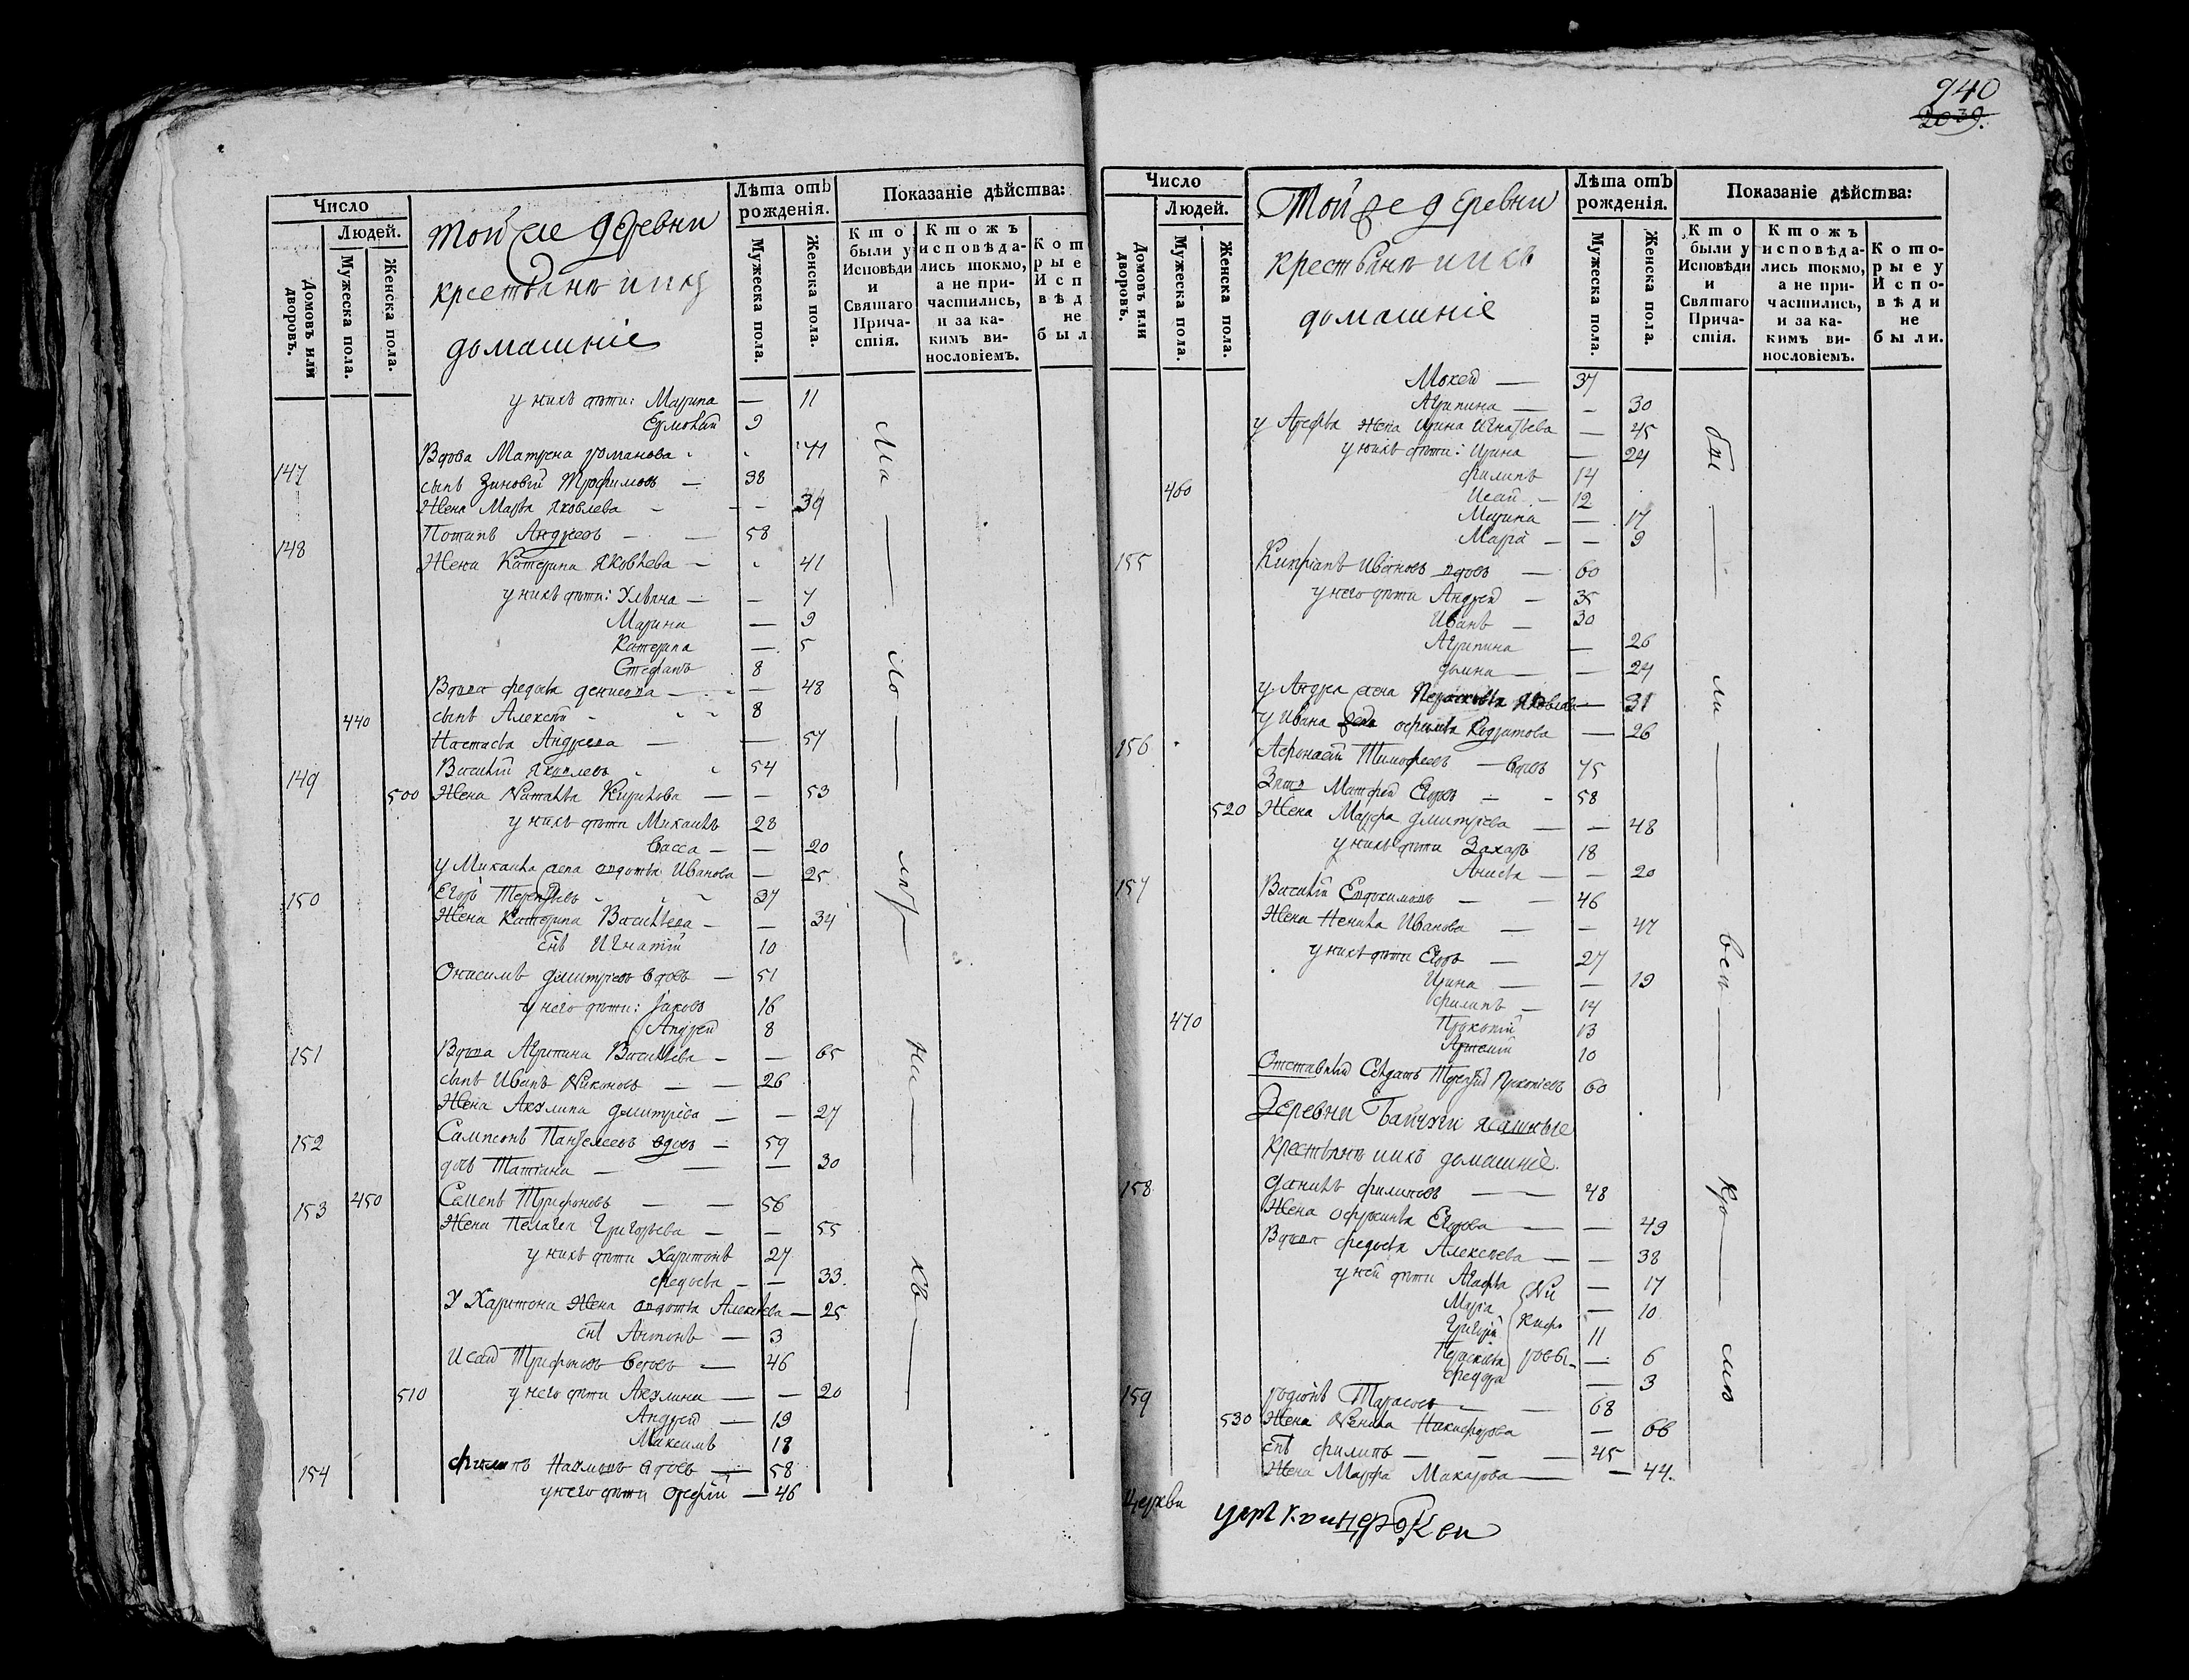 Число
Людей.
Домовъ или дворовъ.
Мужеска пола.
Женска пола.
Той же деревни
крестьяне и ихъ
домашніе
Лѣта отъ рожденія.
Мужеска пола.
Женска пола.
Показаніе дѣйства:
Кто были у Исповѣди и Святаго Причастія.
Ктожъ исповѣдались токмо, а не причастились, и за какимъ винословіемъ.
Кот рые Исп вѣд не был
у нихъ дѣти: Марина — 11
Ермолай 9
147 Вдова Матрена Романова
сынъ Зиновій Трофимовъ — 38
Жена Марья Яковлева — 39
148 Потапъ Андреевъ — 58
Жена Катерина Яковлева — 41
у нихъ дѣти: Ульяна — 7
Марина — 9
Катерина — 5
Стефанъ 8
Вдова Федосья Денисова — 48
440 сынъ Алексей 8
Настасья Андреева — 57
149 Василій Яковлевъ 54
500 Жена Наталья Кирилова — 53
у нихъ дѣти Михаилъ 28
Васса — 20
у Михаила жена Авдотья Иванова — 25
150 Егоръ Терентьевъ 37
Жена Катерина Васильева — 34
сынъ Игнатій 10
Онисимъ Дмитріевъ вдовъ — 51
у него дѣти: Іаковъ 16
Андрей 8
151 Вдова Агрипина Васильева — 65
сынъ Иванъ Никоновъ — 26
Жена Акулина Дмитріева — 27
152 Сампсонъ Пантелеевъ вдовъ — 59
дочь Татіана — 30
153 450 Семенъ Трифоновъ — 56
Жена Пелагея Григорьева — 55
у нихъ дѣти Харитонъ 27
Федосья — 33
У Харитона Жена Авдотья Алексѣева — 25
сынъ Антонъ — 3
Исай Трифоновъ вдовъ — 46
510 у него дѣти Акулина — 20
Андрей — 19
Максимъ 18
154 Филипъ Наумовъ вдовъ — 58
у него дѣти Арефій — 46
940
2039.
Число
Людей.
Домовъ или дворовъ.
Мужеска пола.
Женска пола.
Той же деревни
крестьянъ и ихъ
домашніе
Лѣта отъ рожденія.
Мужеска пола.
Женска пола.
Показаніе дѣйства:
Кто были у Исповѣди и Святаго Причастія.
Ктожъ исповѣдались токмо, а не причастились, и за какимъ винословіемъ.
Которые у Исповѣди не были.
Мокей — 37
Агрипина — 30
у Арефья Жена Ирина Игнатьева — 45
у нихъ дѣти: Ирина — 24
Филипъ 14
460 Исай — 12
Марина — 17
Марія — 9
155 Кипріанъ Ивановъ вдовъ — 60
у него дѣти Андрей — 35
Иванъ — 30
Агрипина — 26
Домна — 24
у Андрея жена Парасковья Яковлева — 31
у Ивана жена Офимья Кодратова — 26
156 Афонасій Тимофеевъ — вдовъ 75
Зять Матфей Егоровъ — 58
520 Жена Марфа Дмитріева — 48
у нихъ дѣти Захаръ 18
Анисья — 20
157 Василій Евдокимовъ — 46
Жена Ненила Иванова — 47
у нихъ дѣти Егоръ — 27
Ирина — 19
Филипъ — 14
470 Прокопій 13
Артемій 10
Отставный Солдатъ Терентій Прокопіевъ 60
Деревни Байчуги ясашные
крестьянъ и ихъ домашніе.
158 Данилъ Филиповъ — 48
Жена Офросинья Егорова — 49
Вдова Федосья Алексѣева — 38
у ней дѣти Агафья — 17
Марія — 10
Григорій 11
Парасковья — 6
Федора — 3
Никифоровы
159 Родіонъ Тарасовъ — 68
530 Жена Ненила Никифорова — 66
сынъ Филипъ — 45
Жена Марфа Макарова — 44.
Церкви